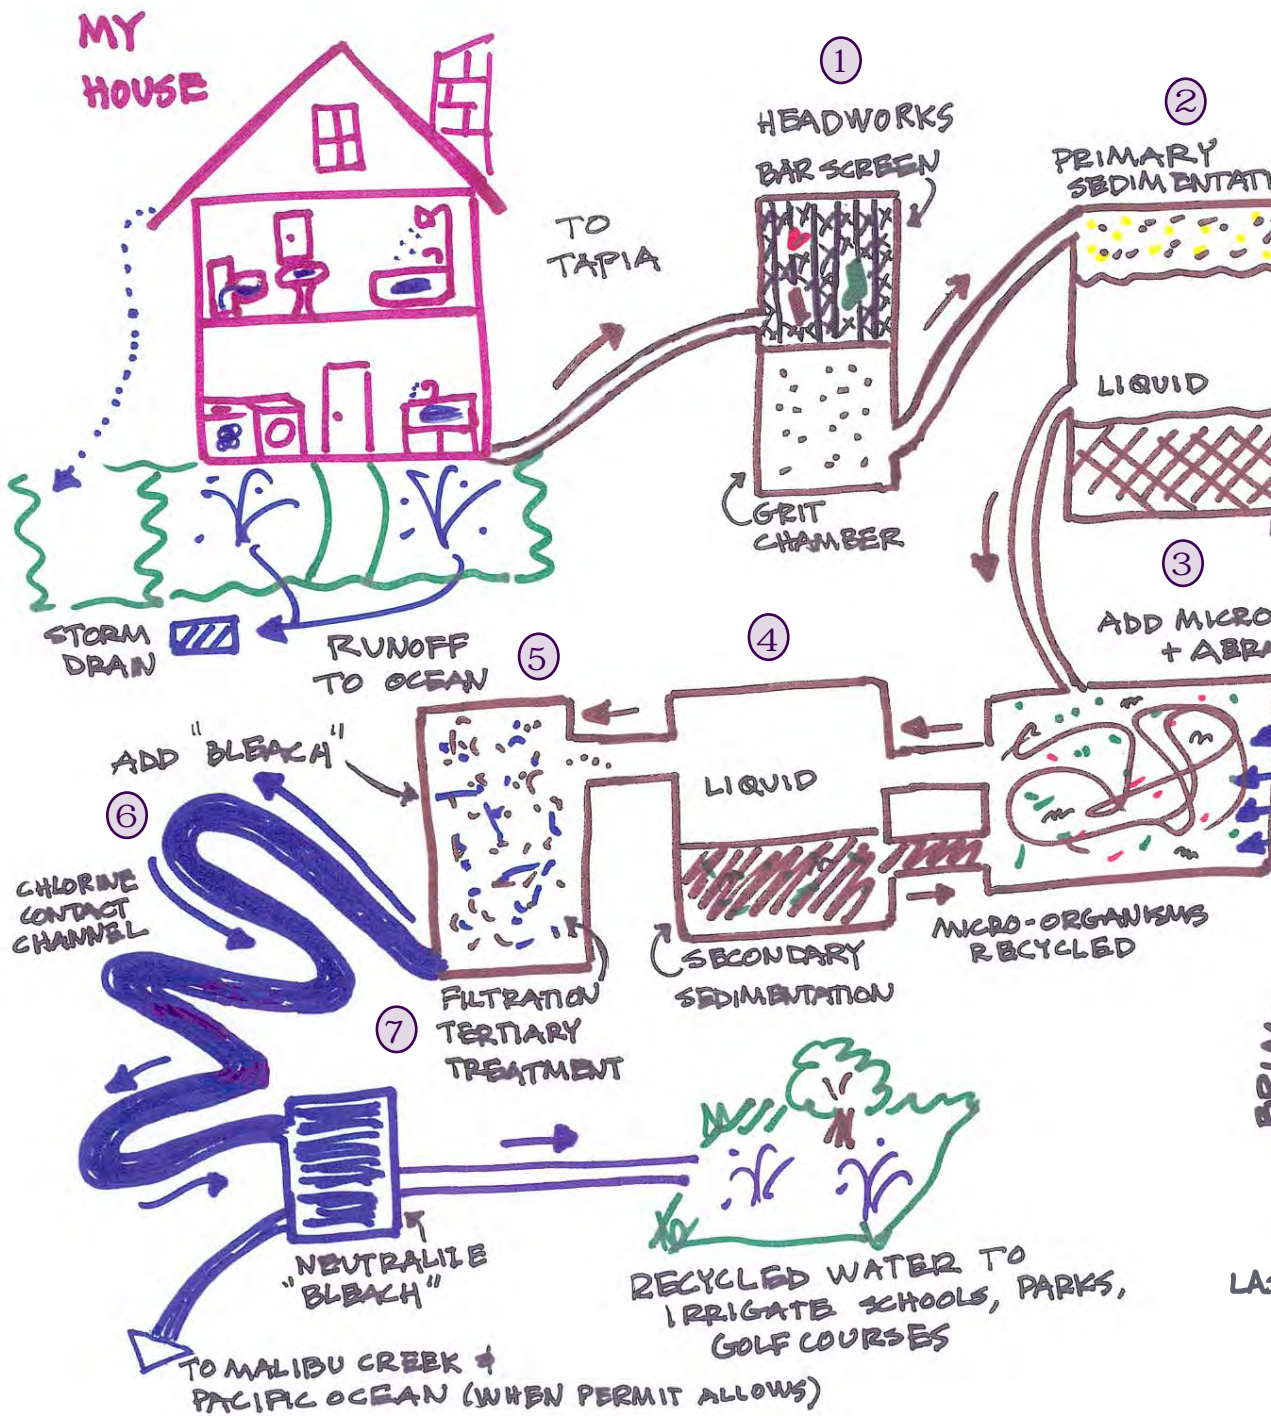 MY
HOUSE
1
HEADWORKS
BAR SCREEN
2
PRIMARY
SEDIMENTATI
TO
TAPIA
LIQUID
GRIT
CHAMBER
3
ADD MICRO
+ AERA
STORM
DRAIN
RUNOFF
TO OCEAN
5
4
ADD "BLEACH"
LIQUID
6
CHLORINE
CONTACT
CHANNEL
MICRO-ORGANISMS
RECYCLED
SECONDARY
SEDIMENTATION
7
FILTRATION
TERTIARY
TREATMENT
NEUTRALIZE
"BLEACH"
RECYCLED WATER TO
IRRIGATE SCHOOLS, PARKS,
GOLF COURSES
LAS
TO MALIBU CREEK &
PACIFIC OCEAN (WHEN PERMIT ALLOWS)